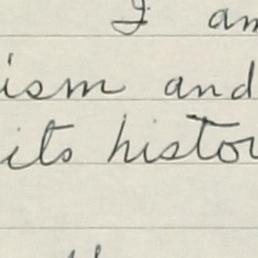 I am
ism and
its histor